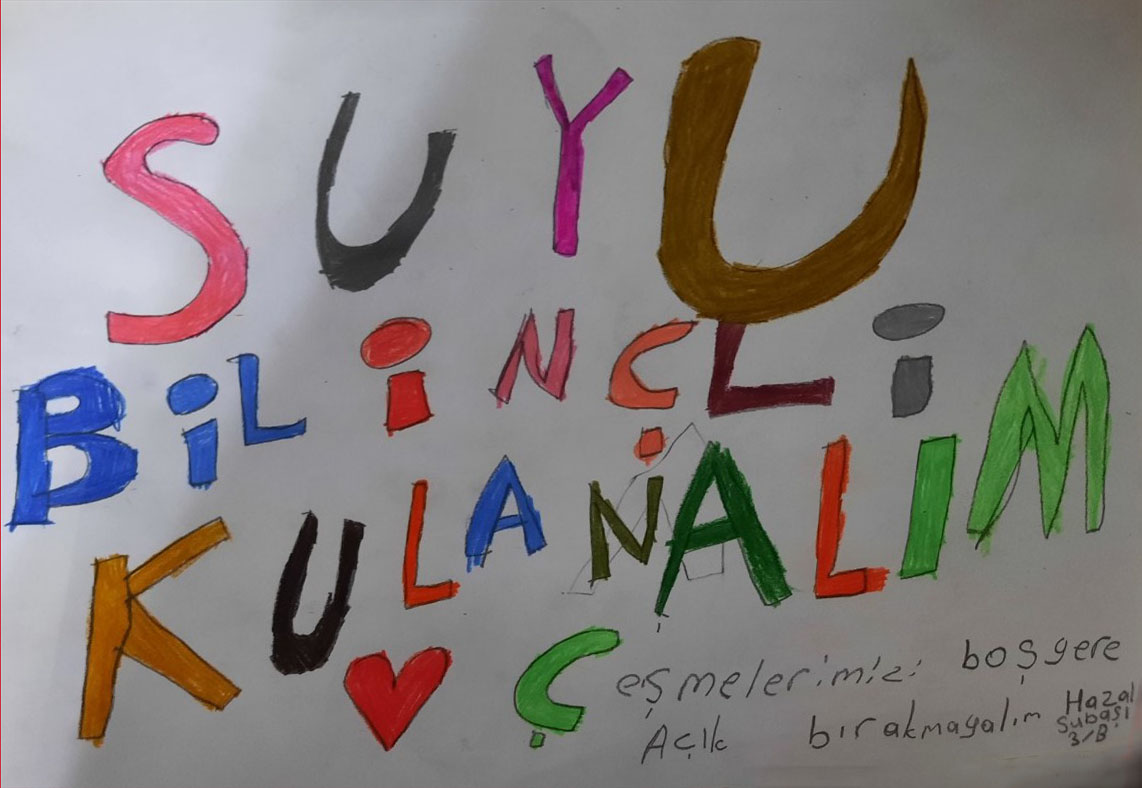 SUYU
BİLİNÇLİ
KULANALIM
Çeşmelerimizi boş yere
Açık bırakmayalım
Hazal
Subaşı
3/B